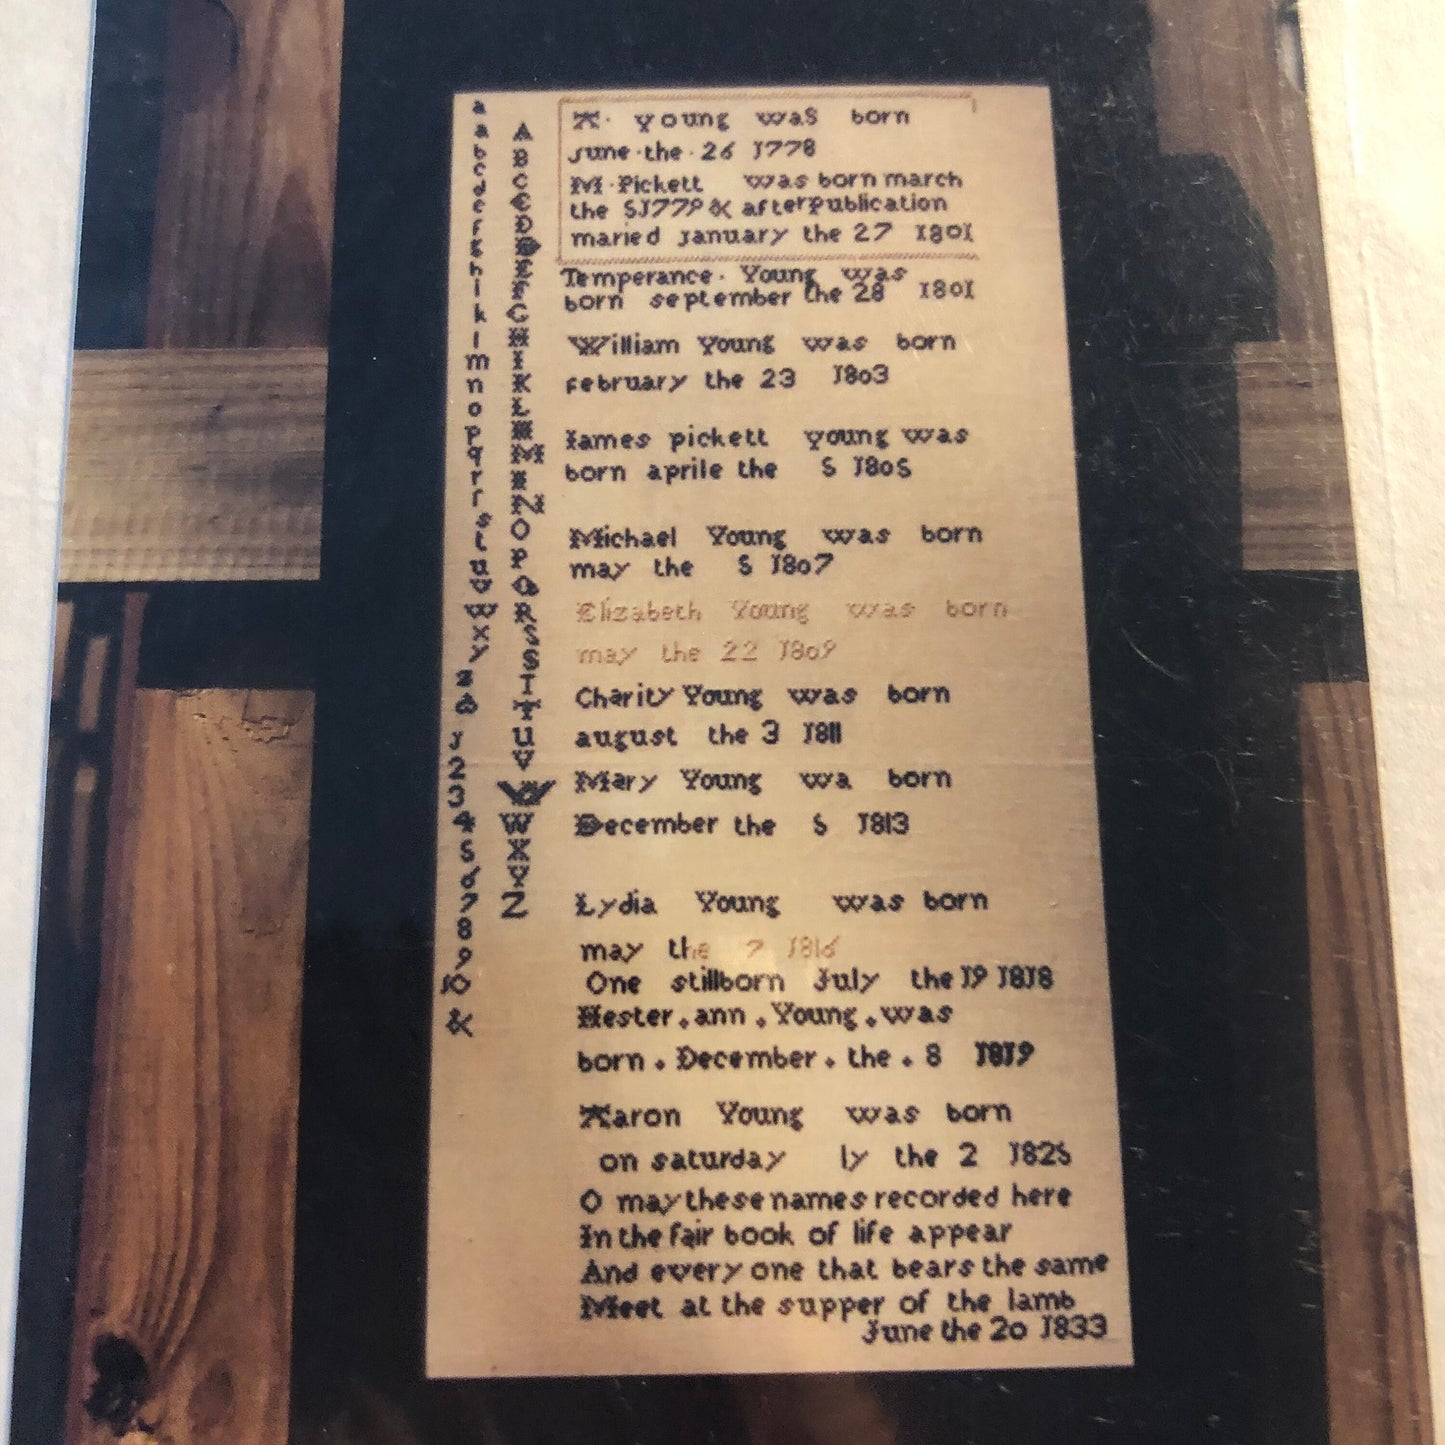 a
a
b
c
d
e
f
g
h
i
k
l
m
n
o
p
q
r
ſ
s
t
u
v
w
x
y
z
&
J
2
3
4
5
6
7
8
9
J0
&
A
B
C
E
D
E
F
G
H
I
K
L
M
N
O
P
Q
R
S
S
I
T
U
V
W
X
Y
Z
A· young was born
june·the·26 J778
M·Pickett was born march
the 5J779 & afterpublication
maried january the 27 I80I
Temperance· Young was
born september the 28 I80I
William Young was born
february the 23 J803
Iames pickett young was
born aprile the 5 J805
Michael Young was born
may the 5 J807
Elizabeth Young was born
may the 22 J809
Charity Young was born
august the 3 J811
Mary Young wa born
December the 5 J813
Lydia Young was born
may the 7 J816
One stillborn July the J9 J8J8
Hester.ann.Young.was
born.December.the.8 J8J9
Aaron Young was born
on saturday ly the 2 J825
O may these names recorded here
In the fair book of life appear
And every one that bears the same
Meet at the supper of the lamb
June the 20 J833